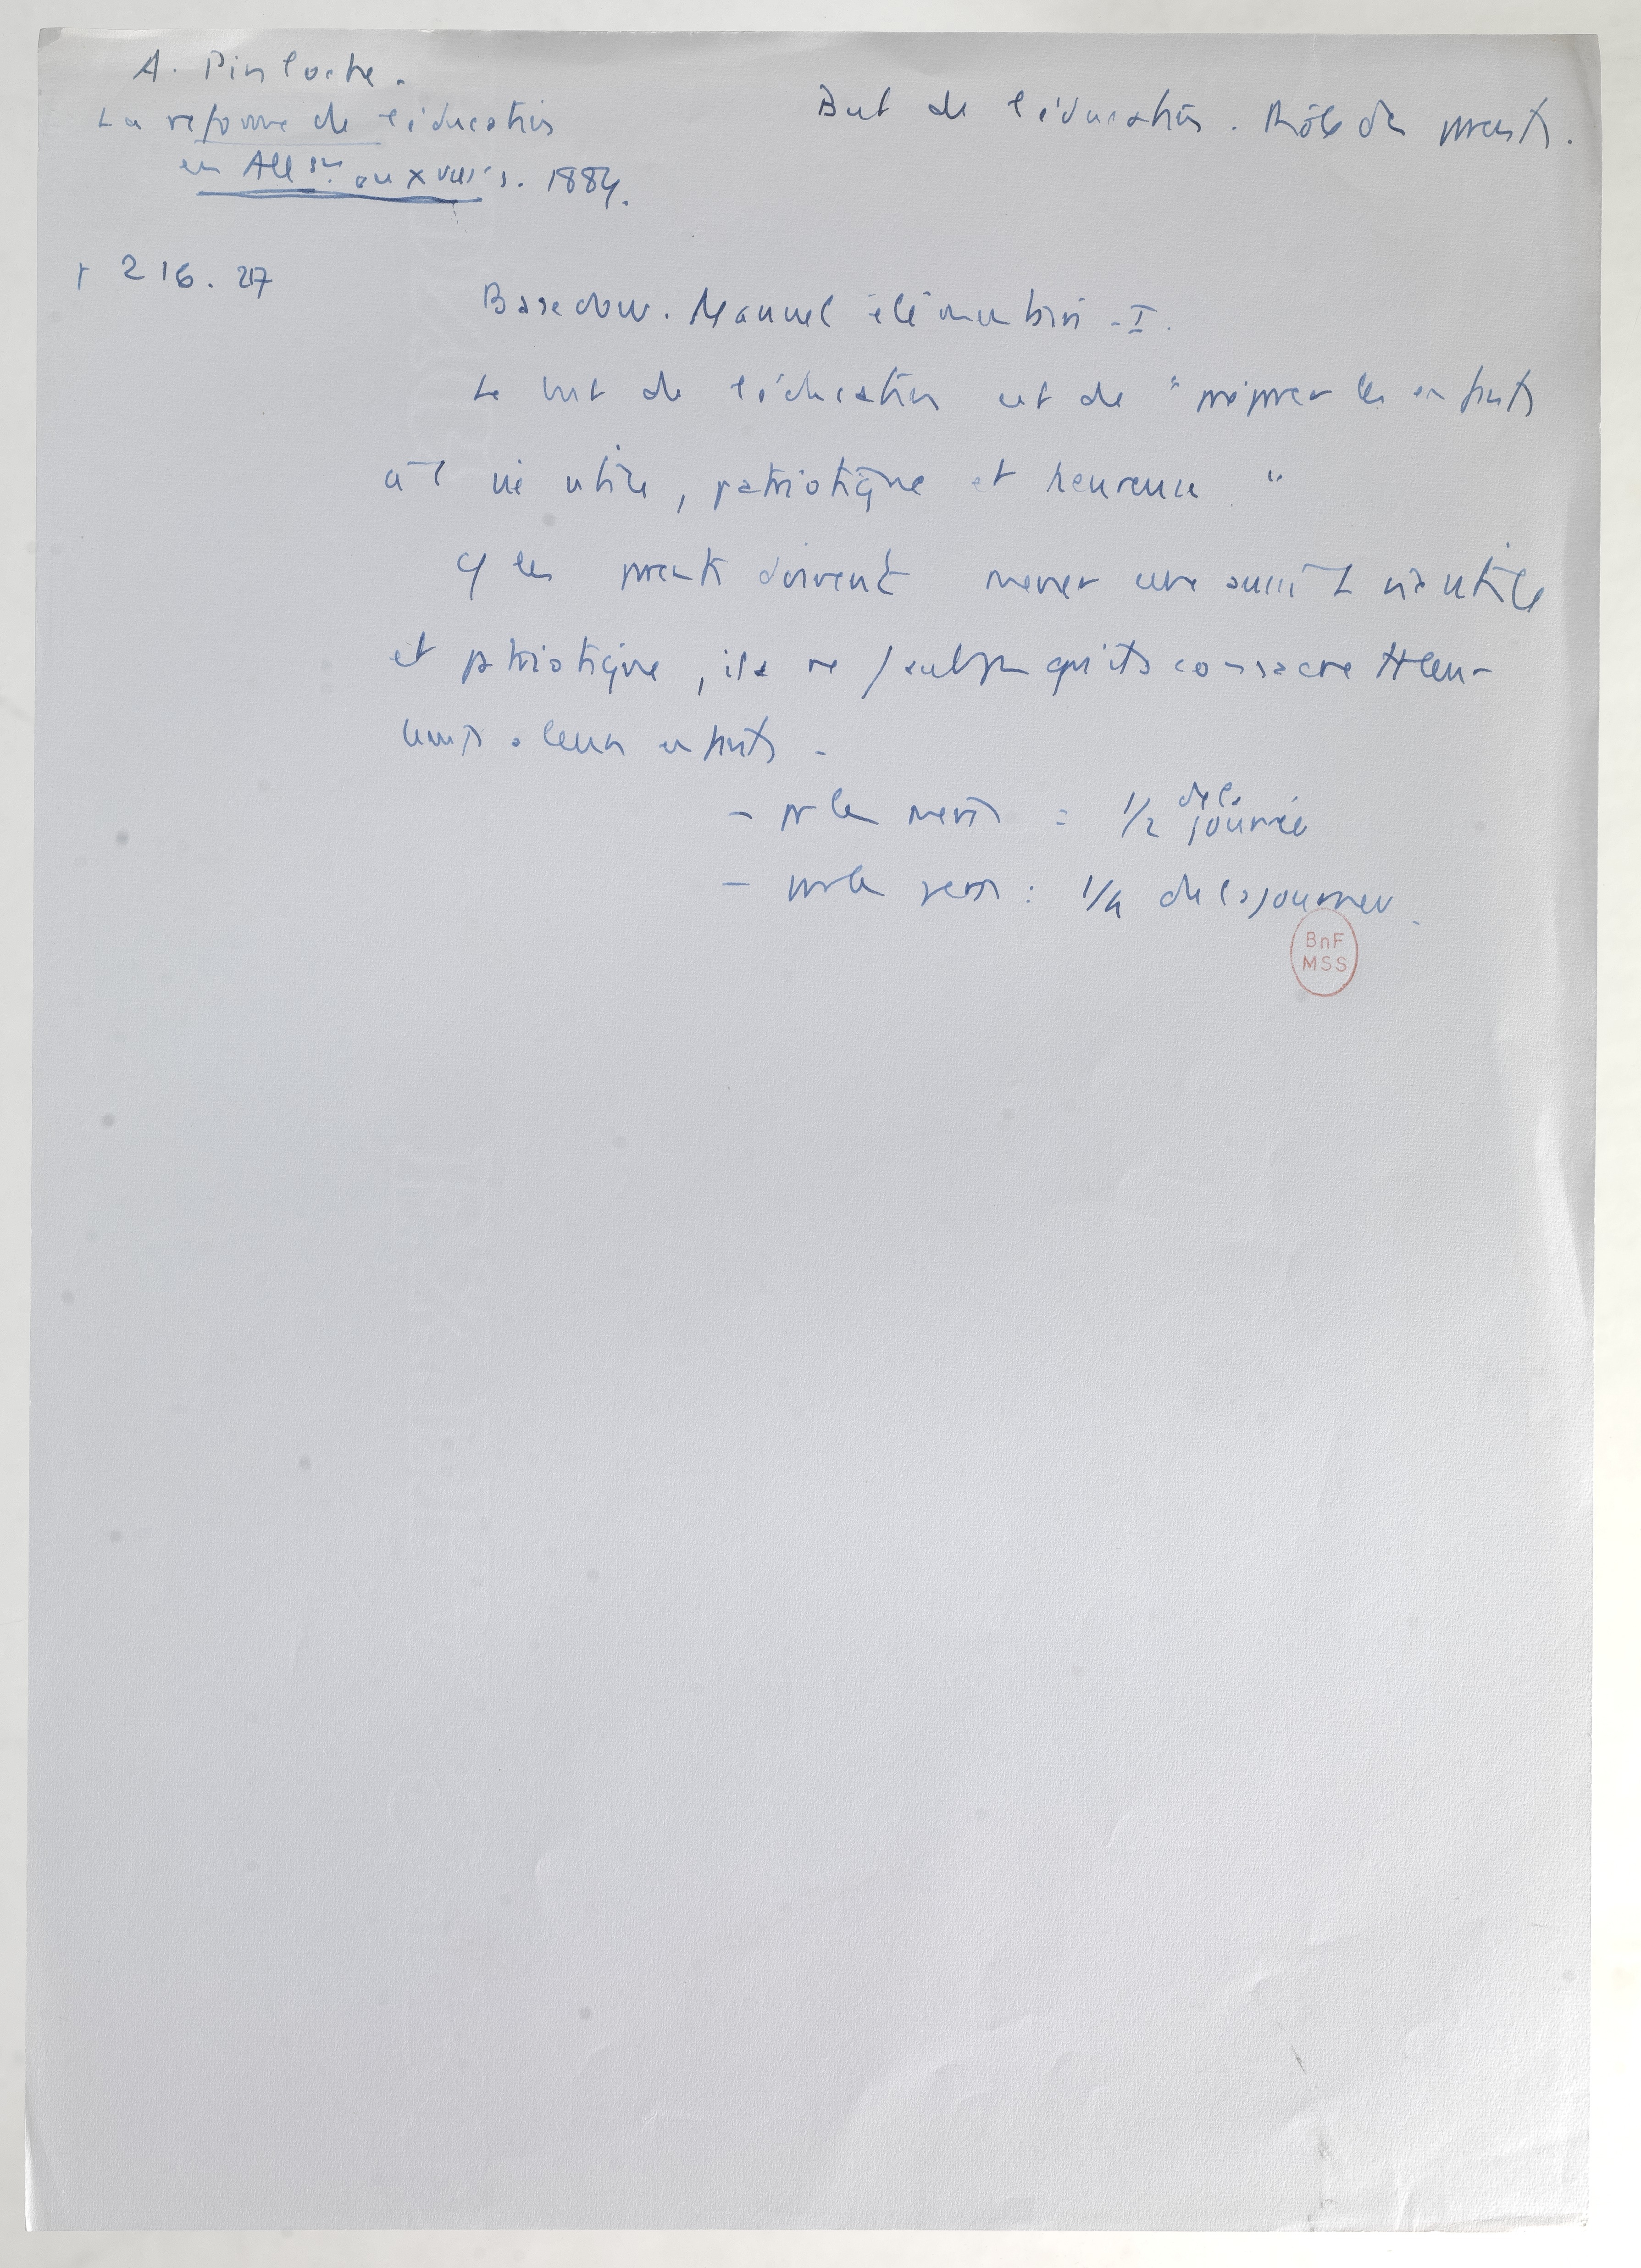 A. Pinloche.
La réforme de l'éducation
en All gne au XVIII s. 1889.
But de l'éducation. Rôle des parents.
p 216. 217
Basedow. Manuel élémentaire - I.
Le but de l'éducation est de "préparer les enfants
à 1 vie utile, patriotique et heureuse"
les parents doivent mener eux aussi 1 vie utile
et patriotique, il ne faut pas qu'ils consacrent tt leur
temps à leurs enfants -
- pr les mères : 1/2 de la journée
- pr les pères : 1/4 de la journée.
BnF
MSS